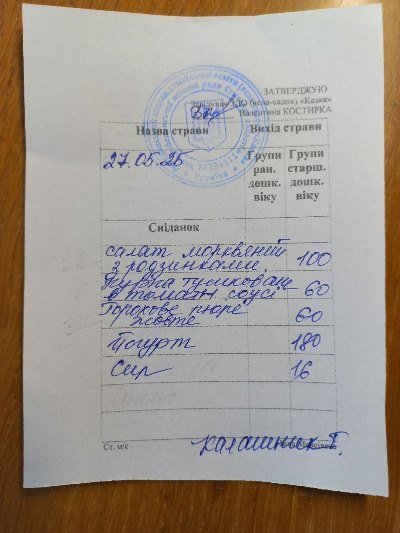 ЗАТВЕРДЖУЮ
Завідувач ЗДО (ясла-садок) «Казка»
Валентина КОСТИРКА
Назва страви Вихід страви
27.05.25
Групи ран. дошк. віку
Групи старш. дошк. віку
Сніданок
салат морквяний
з родзинками 100
Курка тушкована
в томатн соусі 60
Горохове пюре
жовте 60
Йогурт 180
Сир 16
Ст. м/с Калашник Т.